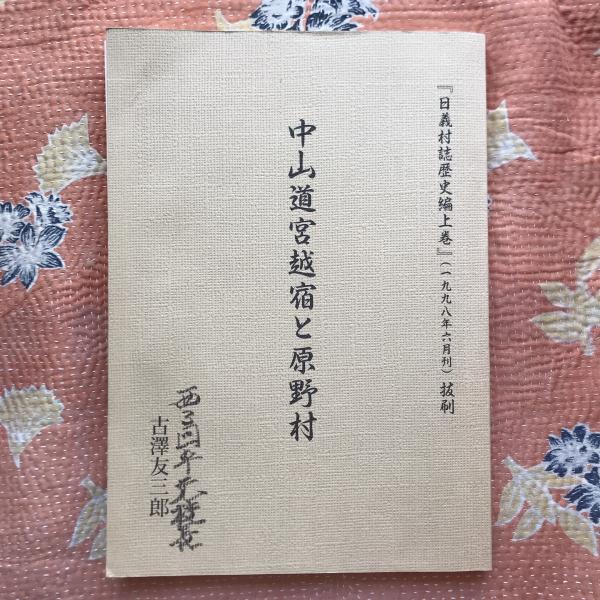 『日義村誌歴史編上巻』(一九九八年六月刊)抜刷
中山道宮越宿と原野村
古澤友三郎